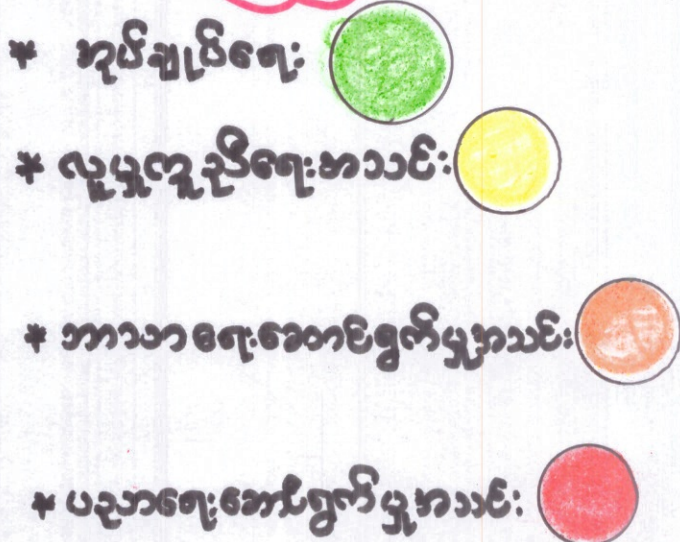 * အုပ်ချုပ်ရေး
* လူမှုကူညီရေးအသင်း
* ဘာသာရေးဆောင်ရွက်မှုအသင်း
* ပညာရေးဆောင်ရွက်မှုအသင်း